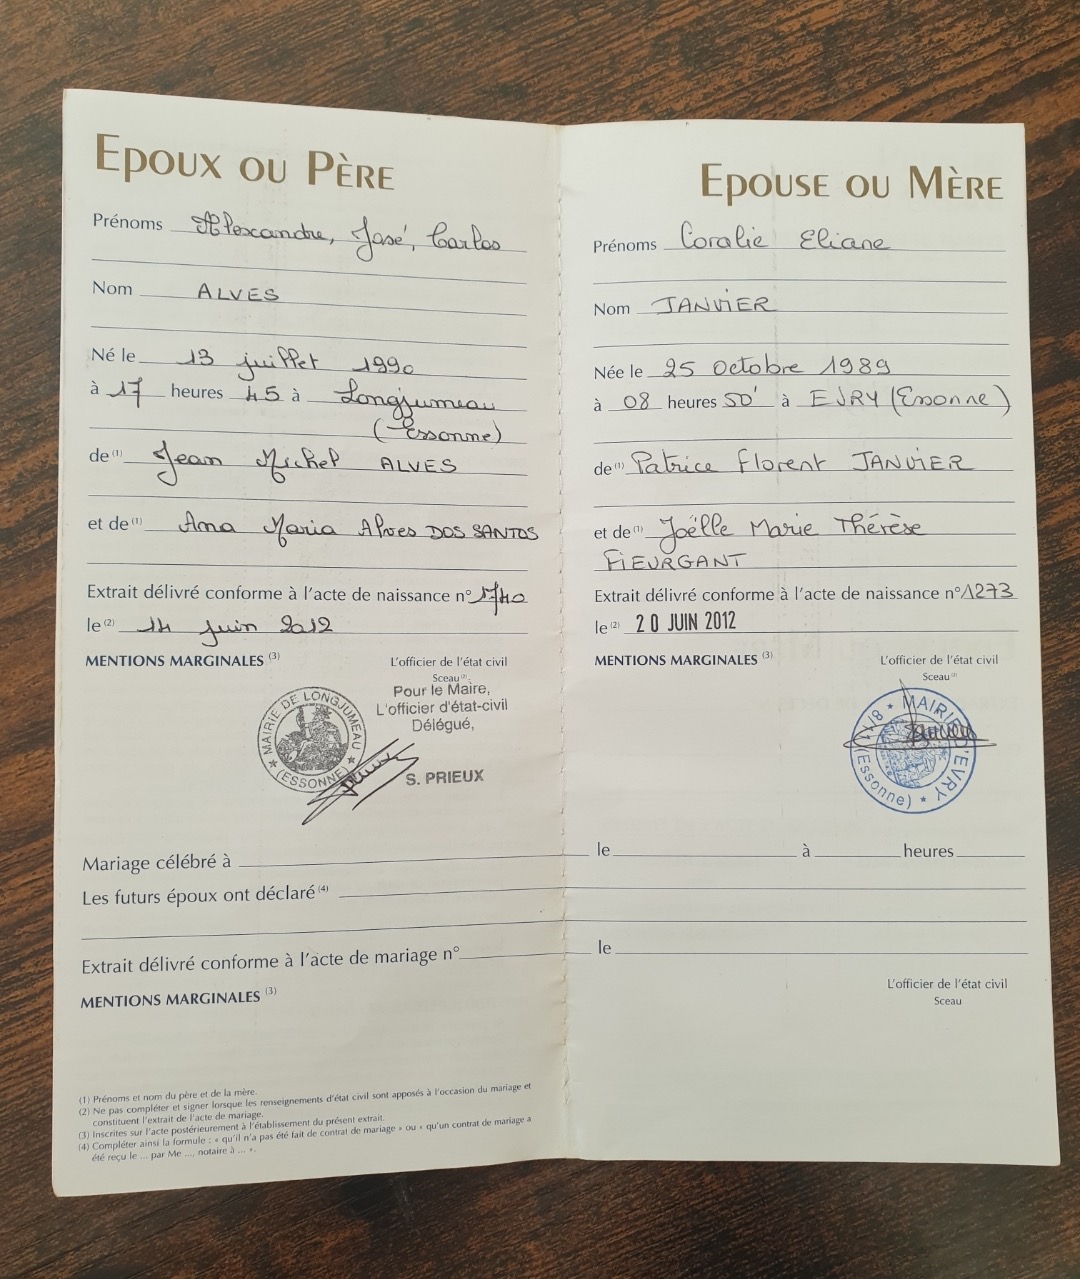 EPOUX OU PÈRE
Prénoms Alexandre, José, Carlos
Nom ALVES
Né le 13 juillet 1990
à 17 heures 45 à Longjumeau
(Essonne)
de (1) Jean Michel ALVES
et de (1) Ana Maria Alves DOS SANTOS
Extrait délivré conforme à l'acte de naissance n° 1740
le (2) 14 juin 2012
MENTIONS MARGINALES (3)
L'officier de l'état civil
Sceau (2)
Pour le Maire,
L'officier d'état-civil
Délégué,
S. PRIEUX
MAIRIE DE LONGJUMEAU
★ (ESSONNE) ★
EPOUSE OU MÈRE
Prénoms Coralie Eliane
Nom JANVIER
Née le 25 Octobre 1989
à 08 heures 50' à EVRY (Essonne)
de (1) Patrice Florent JANVIER
et de (1) Joëlle Marie Thérèse
FIEURGANT
Extrait délivré conforme à l'acte de naissance n° 1273
le (2) 20 JUIN 2012
MENTIONS MARGINALES (3)
L'officier de l'état civil
Sceau (2)
MAIRIE D'EVRY
★ (Essonne) ★
Mariage célébré à le à heures
Les futurs époux ont déclaré (4)
Extrait délivré conforme à l'acte de mariage n° le
MENTIONS MARGINALES (3)
L'officier de l'état civil
Sceau
(1) Prénoms et nom du père et de la mère.
(2) Ne pas compléter et signer lorsque les renseignements d'état civil sont apposés à l'occasion du mariage et
constituent l'extrait de l'acte de mariage.
(3) Inscrites sur l'acte postérieurement à l'établissement du présent extrait.
(4) Compléter ainsi la formule : « qu'il n'a pas été fait de contrat de mariage » ou « qu'un contrat de mariage a
été reçu le ... par Me ..., notaire à ... ».